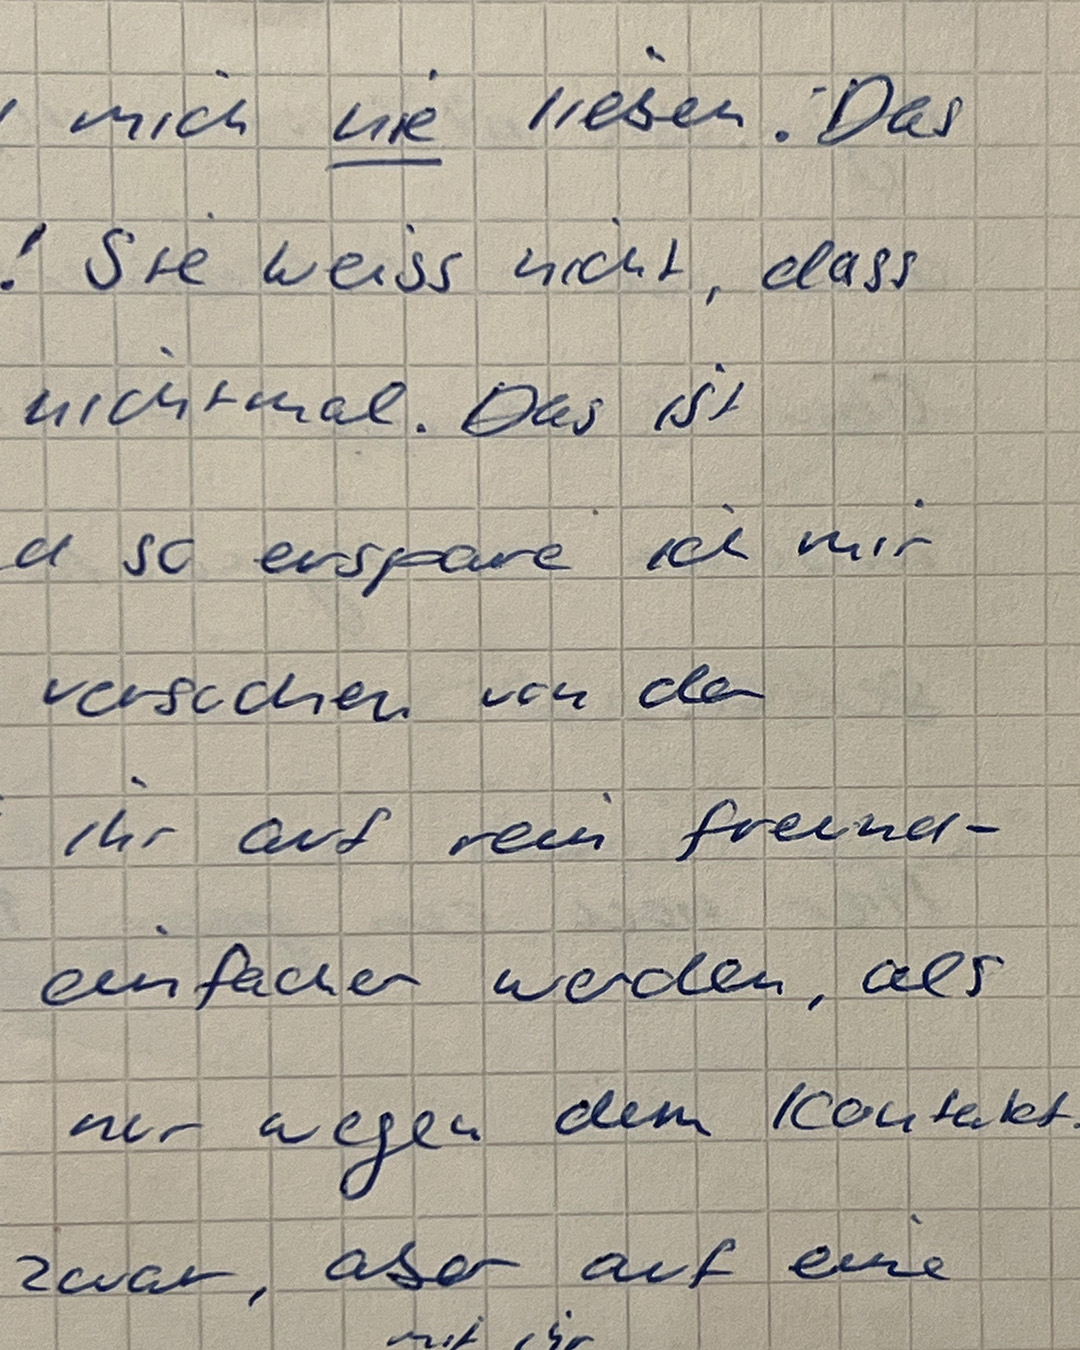 mich nie lieben. Das
! Sie weiss nicht, dass
nichtmal. Das ist
d so erspare ich mir
versuchen von der
ihr auf rein freund-
einfacher werden, als
nur wegen dem Kontakt.
zwar, aber auf eine
mit ihr